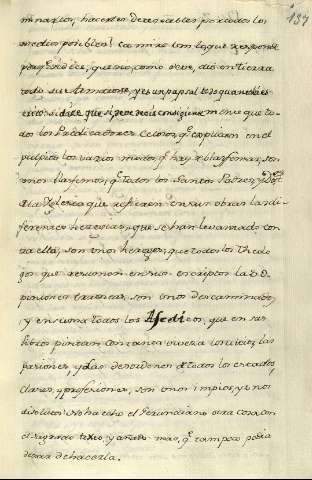 187
minarlos, hacerlos detestables por todos los
medios posibles! Camine con lo que responde
en tierra
todo su Armazone, y es un papal todo quanto les
y se decia consiguiente mente que to-
dos los Predicadores Celosos, q.e explican en el
pulpito los varios modos q.e hay de blasfemar, son
unos blasfemos; q.e todos los Santos Padres, y
de la Yglesia que refieren en sus obras las di-
ferentes heregias, que se han levantado con-
tra ella, son unos hereges; que todos los Theolo-
gos que resumen en sus escriptos las o-
piniones erroneas, son unos descaminados;
y en suma todos los Asceticos, que en sus
libros pintan con tanta viveza los vicios, las
pasiones, y los desordenes de todos los estados,
clases, y profesiones, son unos impios, y unos
disolutos. No ha echo el Gerundiano otra cosa con
el sagrado texto y añade mas, q.e tampoco podia
dexar de hacerla.